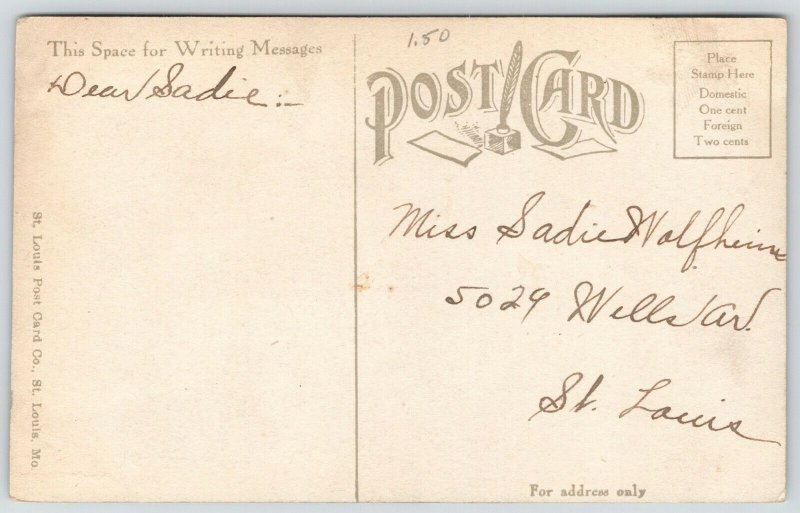 This Space for Writing Messages
Dear Sadie:-
1.50
POST CARD
Place
Stamp Here
Domestic
One cent
Foreign
Two cents
Miss Sadie Wolfheim
5029 Wells Av.
St. Louis
For address only
St. Louis Post Card Co., St. Louis, Mo.